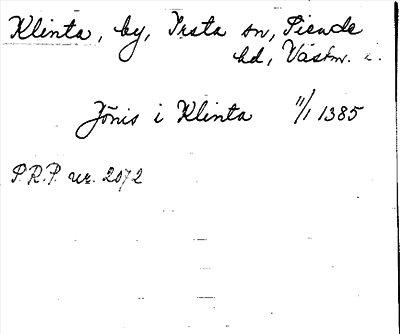 Klinta, by, Irsta sn, Siende
hd, Västm. l.
Jönis i Klinta 11/1 1385
P.R.P. nr. 2072